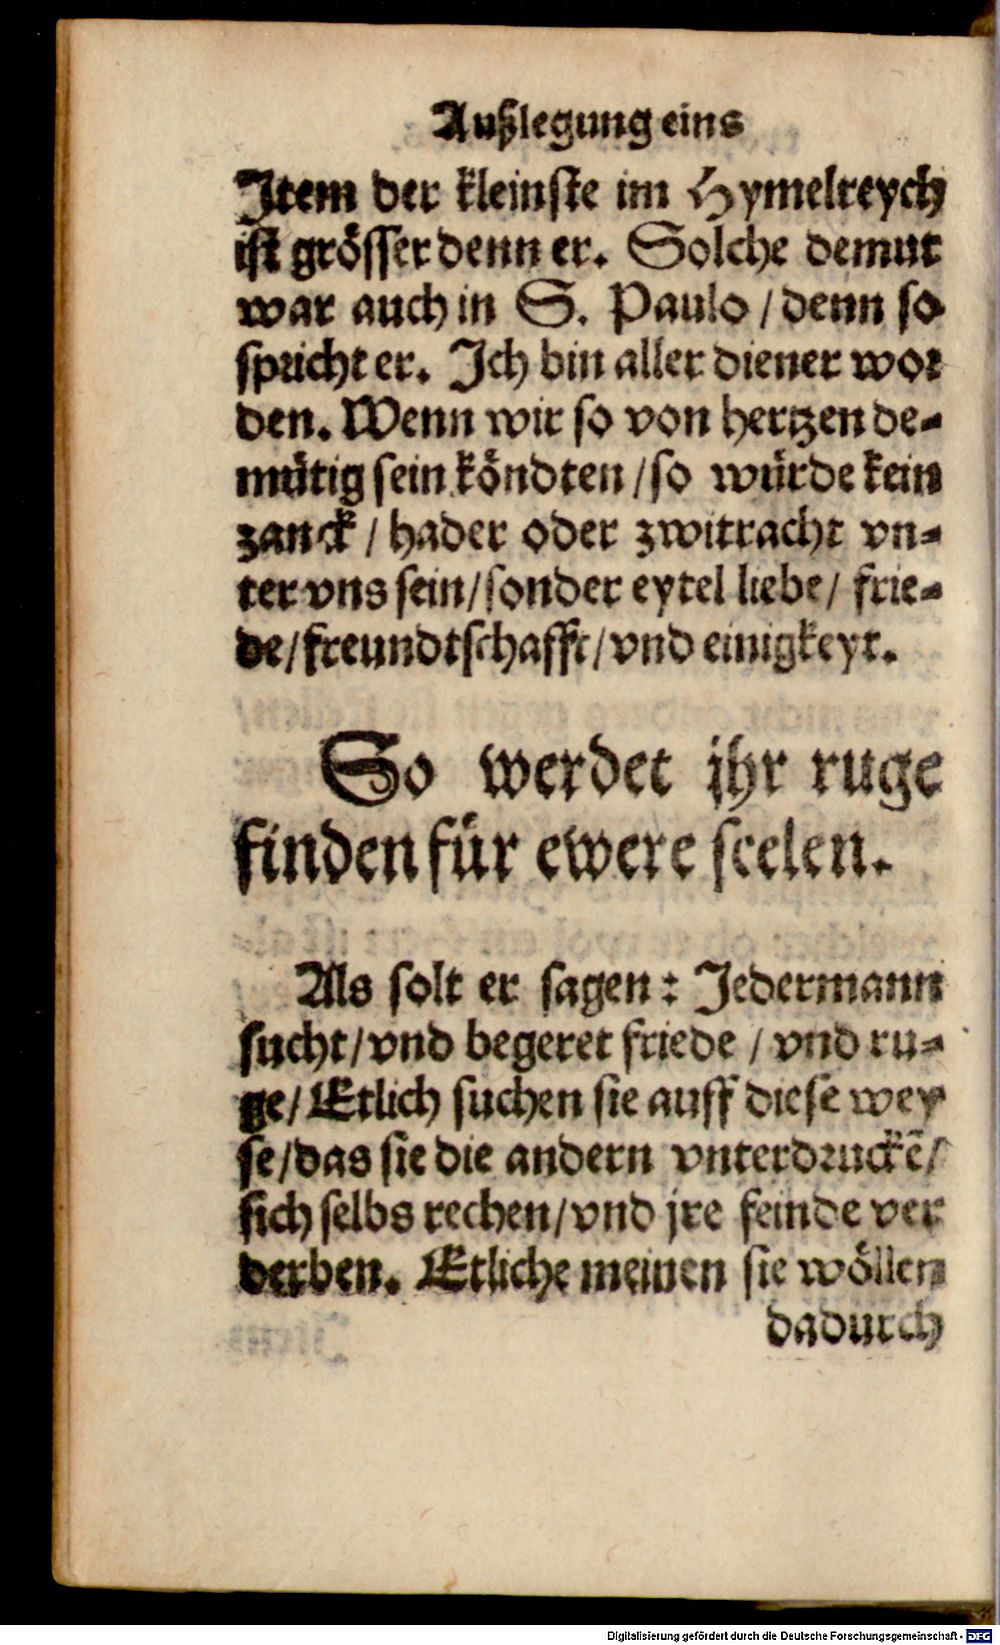 Außlegung eins
Item der kleinste im Hymelreych
ist grösser denn er. Solche demut
war auch in S. Paulo / denn so
spricht er. Ich bin aller diener wor
den. Wenn wir so von hertzen de-
mütig sein köndten / so würde kein
zanck / hader oder zwitracht vn-
ter vns sein / sonder eytel liebe / frie-
de / freundtschafft / vnd einigkeyt.
So werdet jhr ruge
finden für ewere seelen.
Als solt er sagen: Jedermann
sucht / vnd begeret friede / vnd ru-
ge / Etlich suchen sie auff diese wey
se / das sie die andern vnterdruckẽ /
sich selbs rechen / vnd jre feinde ver
derben. Etliche meinen sie wöllen
dadurch
Digitalisierung gefördert durch die Deutsche Forschungsgemeinschaft - DFG